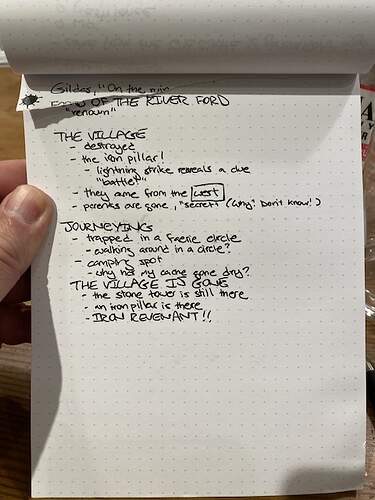 Gildas, "On the ruin
OF THE RIVER FORD
"renown"
THE VILLAGE
- destroyed
- the iron pillar!
- lightning strike reveals a clue
"battle!"
- they came from the west
- parents are gone, "secret" (why? Don't know!)
JOURNEYING
- trapped in a faerie circle
- walking around in a circle?
- camping spot
- why has my gone dry?
THE VILLAGE IS GONE
- the stone tower is still there
- an iron pillar is there
- IRON REVENANT!!
A